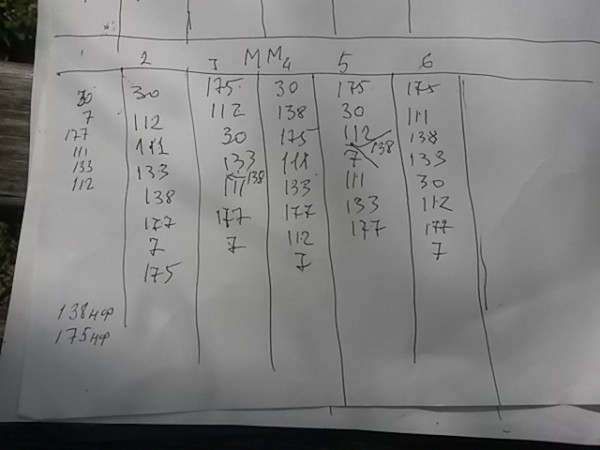 1 2 3 M M4 5 6
30 30 175 30 175 175
7 112 112 138 30 111
177 111 30 175 112 138
111 133 133 111 7 138 133
133 138 111 138 133 111 30
112 177 177 177 133 112
7 7 112 177 177
175 7 7
138 нф
175 нф